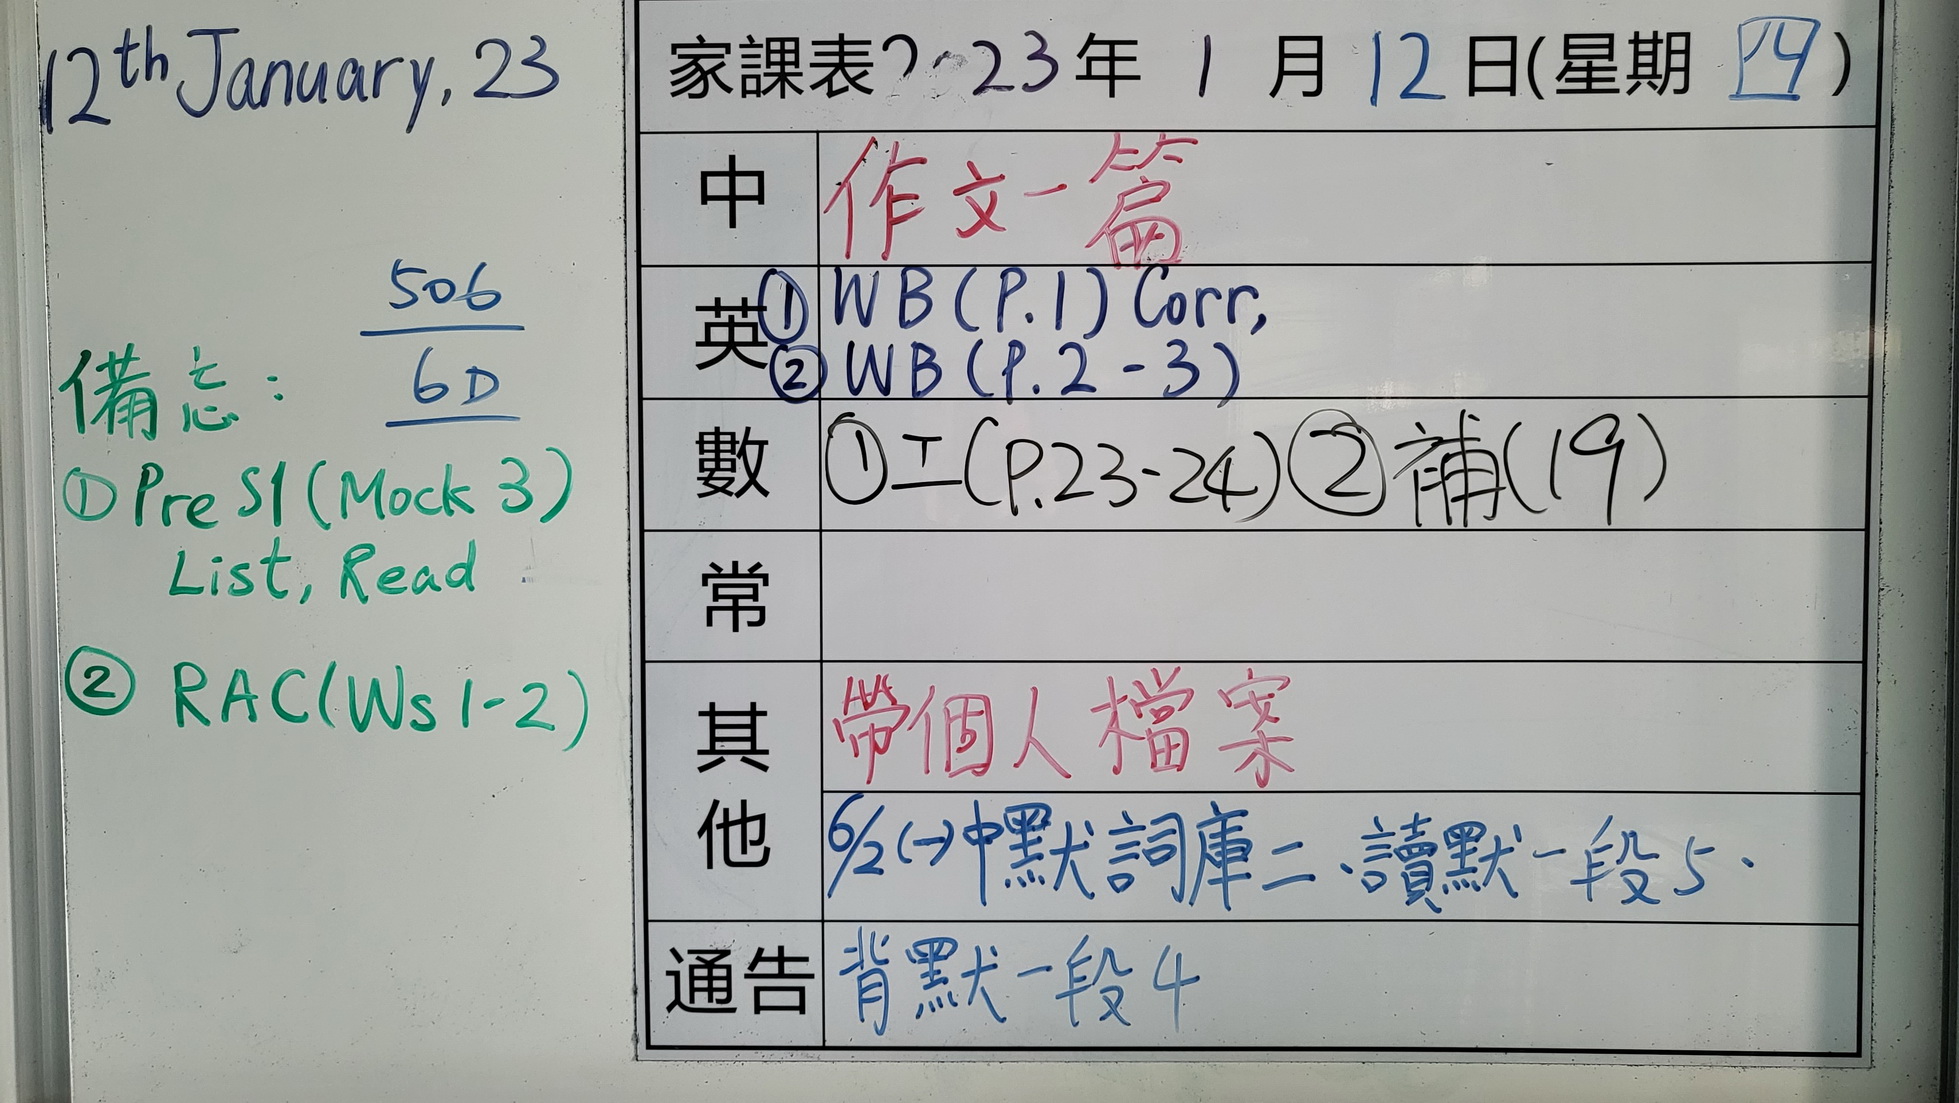 12th January, 23
506
6D
備忘：
① Pre S1 (Mock 3)
List, Read
② RAC (Ws 1-2)
家課表 2023年 1 月 12 日(星期 四)
中 作文一篇
英 ① WB (P.1) Corr,
② WB (P.2-3)
數 ①工(P.23-24)②補(19)
常
其他 帶個人檔案
6/2(一)中默詞庫二、讀默一段5、
通告 背默一段4